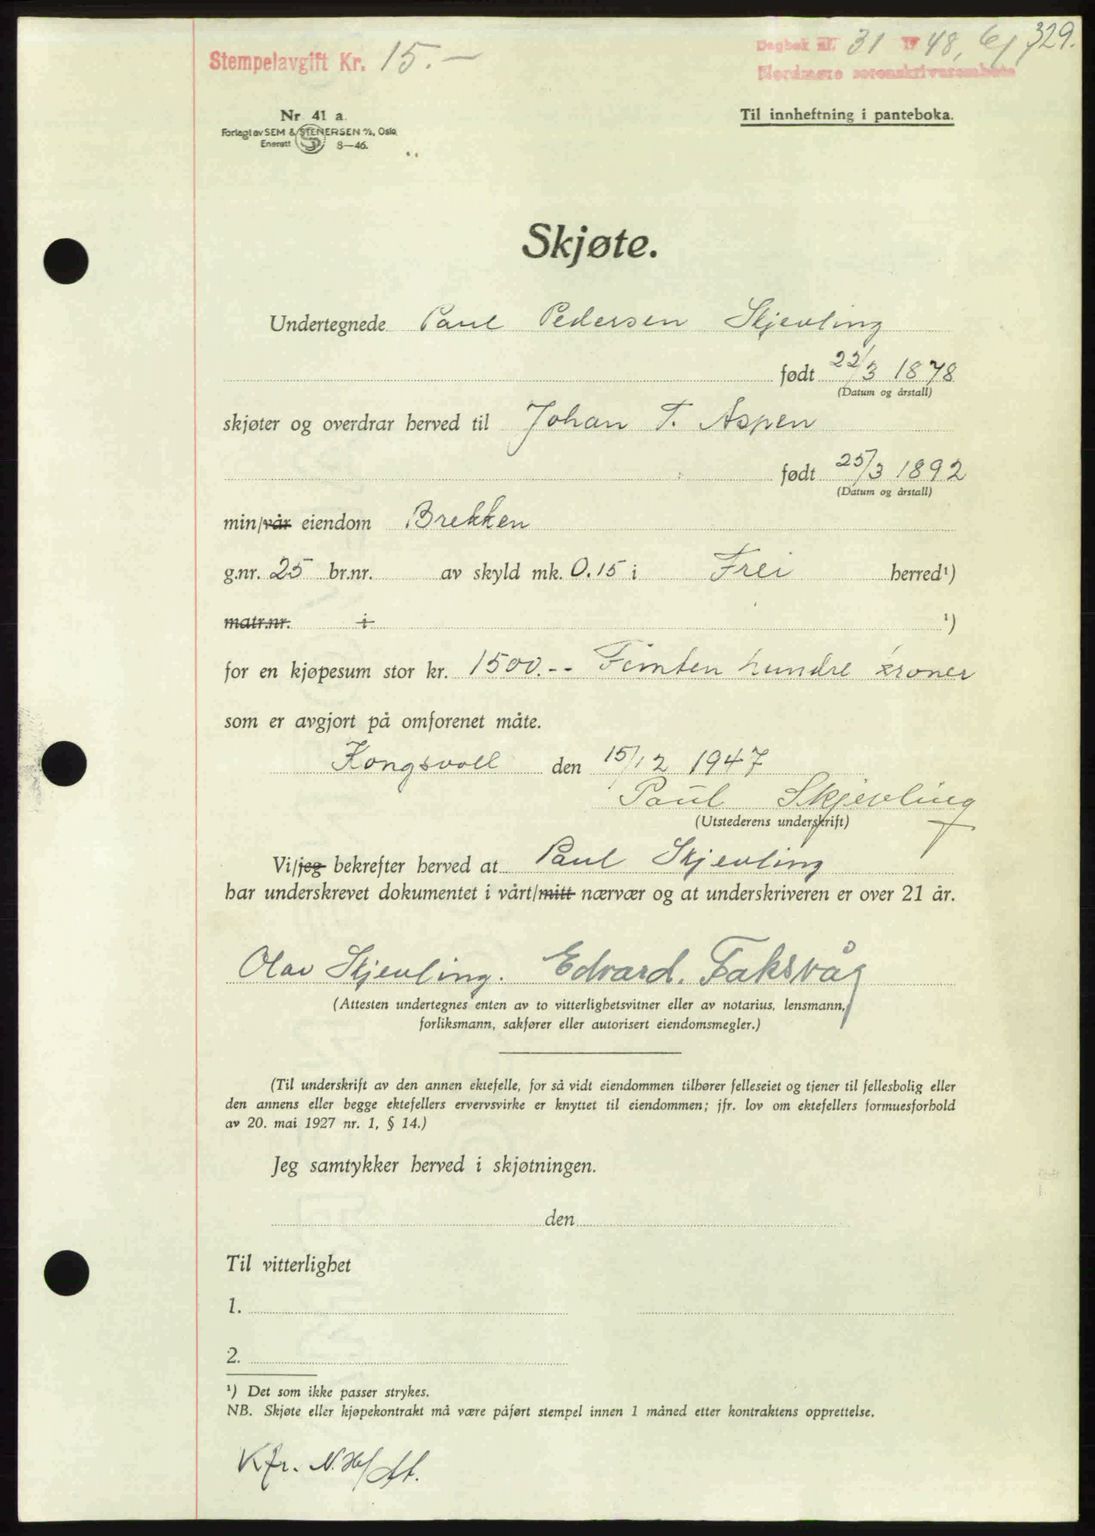 329.
Stempelavgift Kr. 15.—
Dagbok nr. 31 19 48, 6/1
Nordmøre sorenskriverembete
Nr 41 a.
Til innheftning i panteboka.
Forlagt av SEM & STENERSEN A/S, Oslo
Enerett 8—46.
Skjøte.
Undertegnede Paul Pedersen Skjevling
født 22/3 1878
(Datum og årstall)
skjøter og overdrar herved til Johan T. Aspen
født 25/3 1892
(Datum og årstall)
min/vår eiendom Brekken
g.nr. 25 br.nr. av skyld mk. 0.15 i Frei herred¹)
matr.nr. i ¹)
for en kjøpesum stor kr. 1500.-- Femten hundre kroner
som er avgjort på omforenet måte.
Kongsvoll den 15/12 1947
Paul Skjevling
(Utstederens underskrift)
Vi/jeg bekrefter herved at Paul Skjevling
har underskrevet dokumentet i vårt/mitt nærvær og at underskriveren er over 21 år.
Olav Skjevling. Edvard. Faksvåg
(Attesten undertegnes enten av to vitterlighetsvitner eller av notarius, lensmann,
forliksmann, sakfører eller autorisert eiendomsmegler.)
(Til underskrift av den annen ektefelle, for så vidt eiendommen tilhører felleseiet og tjener til fellesbolig eller
den annens eller begge ektefellers ervervsvirke er knyttet til eiendommen; jfr. lov om ektefellers formuesforhold
av 20. mai 1927 nr. 1, § 14.)
Jeg samtykker herved i skjøtningen.
den
Til vitterlighet
1.
2.
¹) Det som ikke passer strykes.
NB. Skjøte eller kjøpekontrakt må være påført stempel innen 1 måned etter kontraktens opprettelse.
Kfr. N.H/